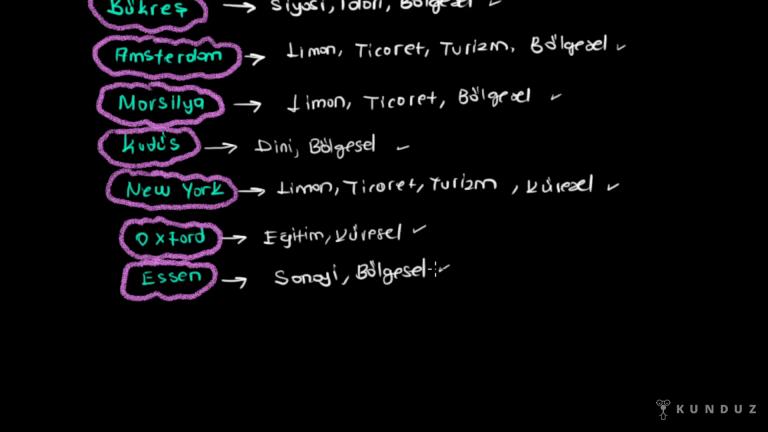 Bükreş → Siyasi, İdari, Bölgesel ✓
Amsterdam → Liman, Ticaret, Turizm, Bölgesel ✓
Marsilya → Liman, Ticaret, Bölgesel ✓
Kudüs → Dini, Bölgesel ✓
New York → Liman, Ticaret, Turizm, Küresel ✓
Oxford → Eğitim, Küresel ✓
Essen → Sanayi, Bölgesel ✓
KUNDUZ